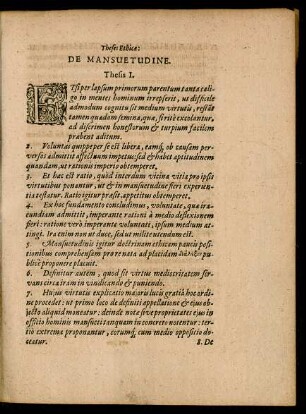 Theses Ethicæ:
DE MANSUETUDINE.
Thesis I.
ETsi per lapsum primorum parentum tanta cali-
go in mentes hominum irrepserit, ut difficile
admodum cognitu sit medium virtutis, restāt
tamen quædam semina, quæ, seriò excolantur,
ad discrimen honestorum & turpium facilem
præbent aditum.
2. Voluntas quippe per se est libera, tamq; ob causam per-
versos admittit affectuum impetus: sed & habet aptitudinem
quandam, ut rationis imperio obtemperet.
3. Et hæc est ratio, quod interdum vicina vitia pro ipsis
virtutibus ponantur, ut & in mansuetudine fieri experientia
testatur. Ratio igitur præsit, appetitus obtemperet.
4. Ex hoc fundamento concludimus, voluntate, quæ ira-
cundiam admittit, imperante rationi à medio deflexionem
fieri: ratione verò imperante voluntati, ipsum medium at-
tingi. Ira enim non ut duce, sed ut milite utendum est.
5. Mansuetudinis igitur doctrinam ethicam paucis posi-
tionibus comprehensam pro re nata ad placidam
publicè proponere placuit.
6. Definitur autem, quod sit virtus mediocritatem ser-
vans circa iram in vindicando & puniendo.
7. Hujus virtutis explicatio majoris lucis gratiâ hoc ordi-
ne procedet: ut primo loco de definiti appellatione & ejus ob-
jecto aliquid moneatur: deinde nota sive proprietates ejus in
officio hominis mansueti tanquam in concreto notentur: ter-
tiò extrema proponantur, eorumq; cum medio oppositio do-
ceatur.
8. De